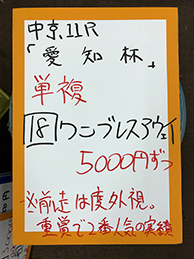 中京11R
「愛知杯」
単複
18 ワンブレスアウェイ
5000円ずつ
※前走は度外視。
重賞で2番人気の実績